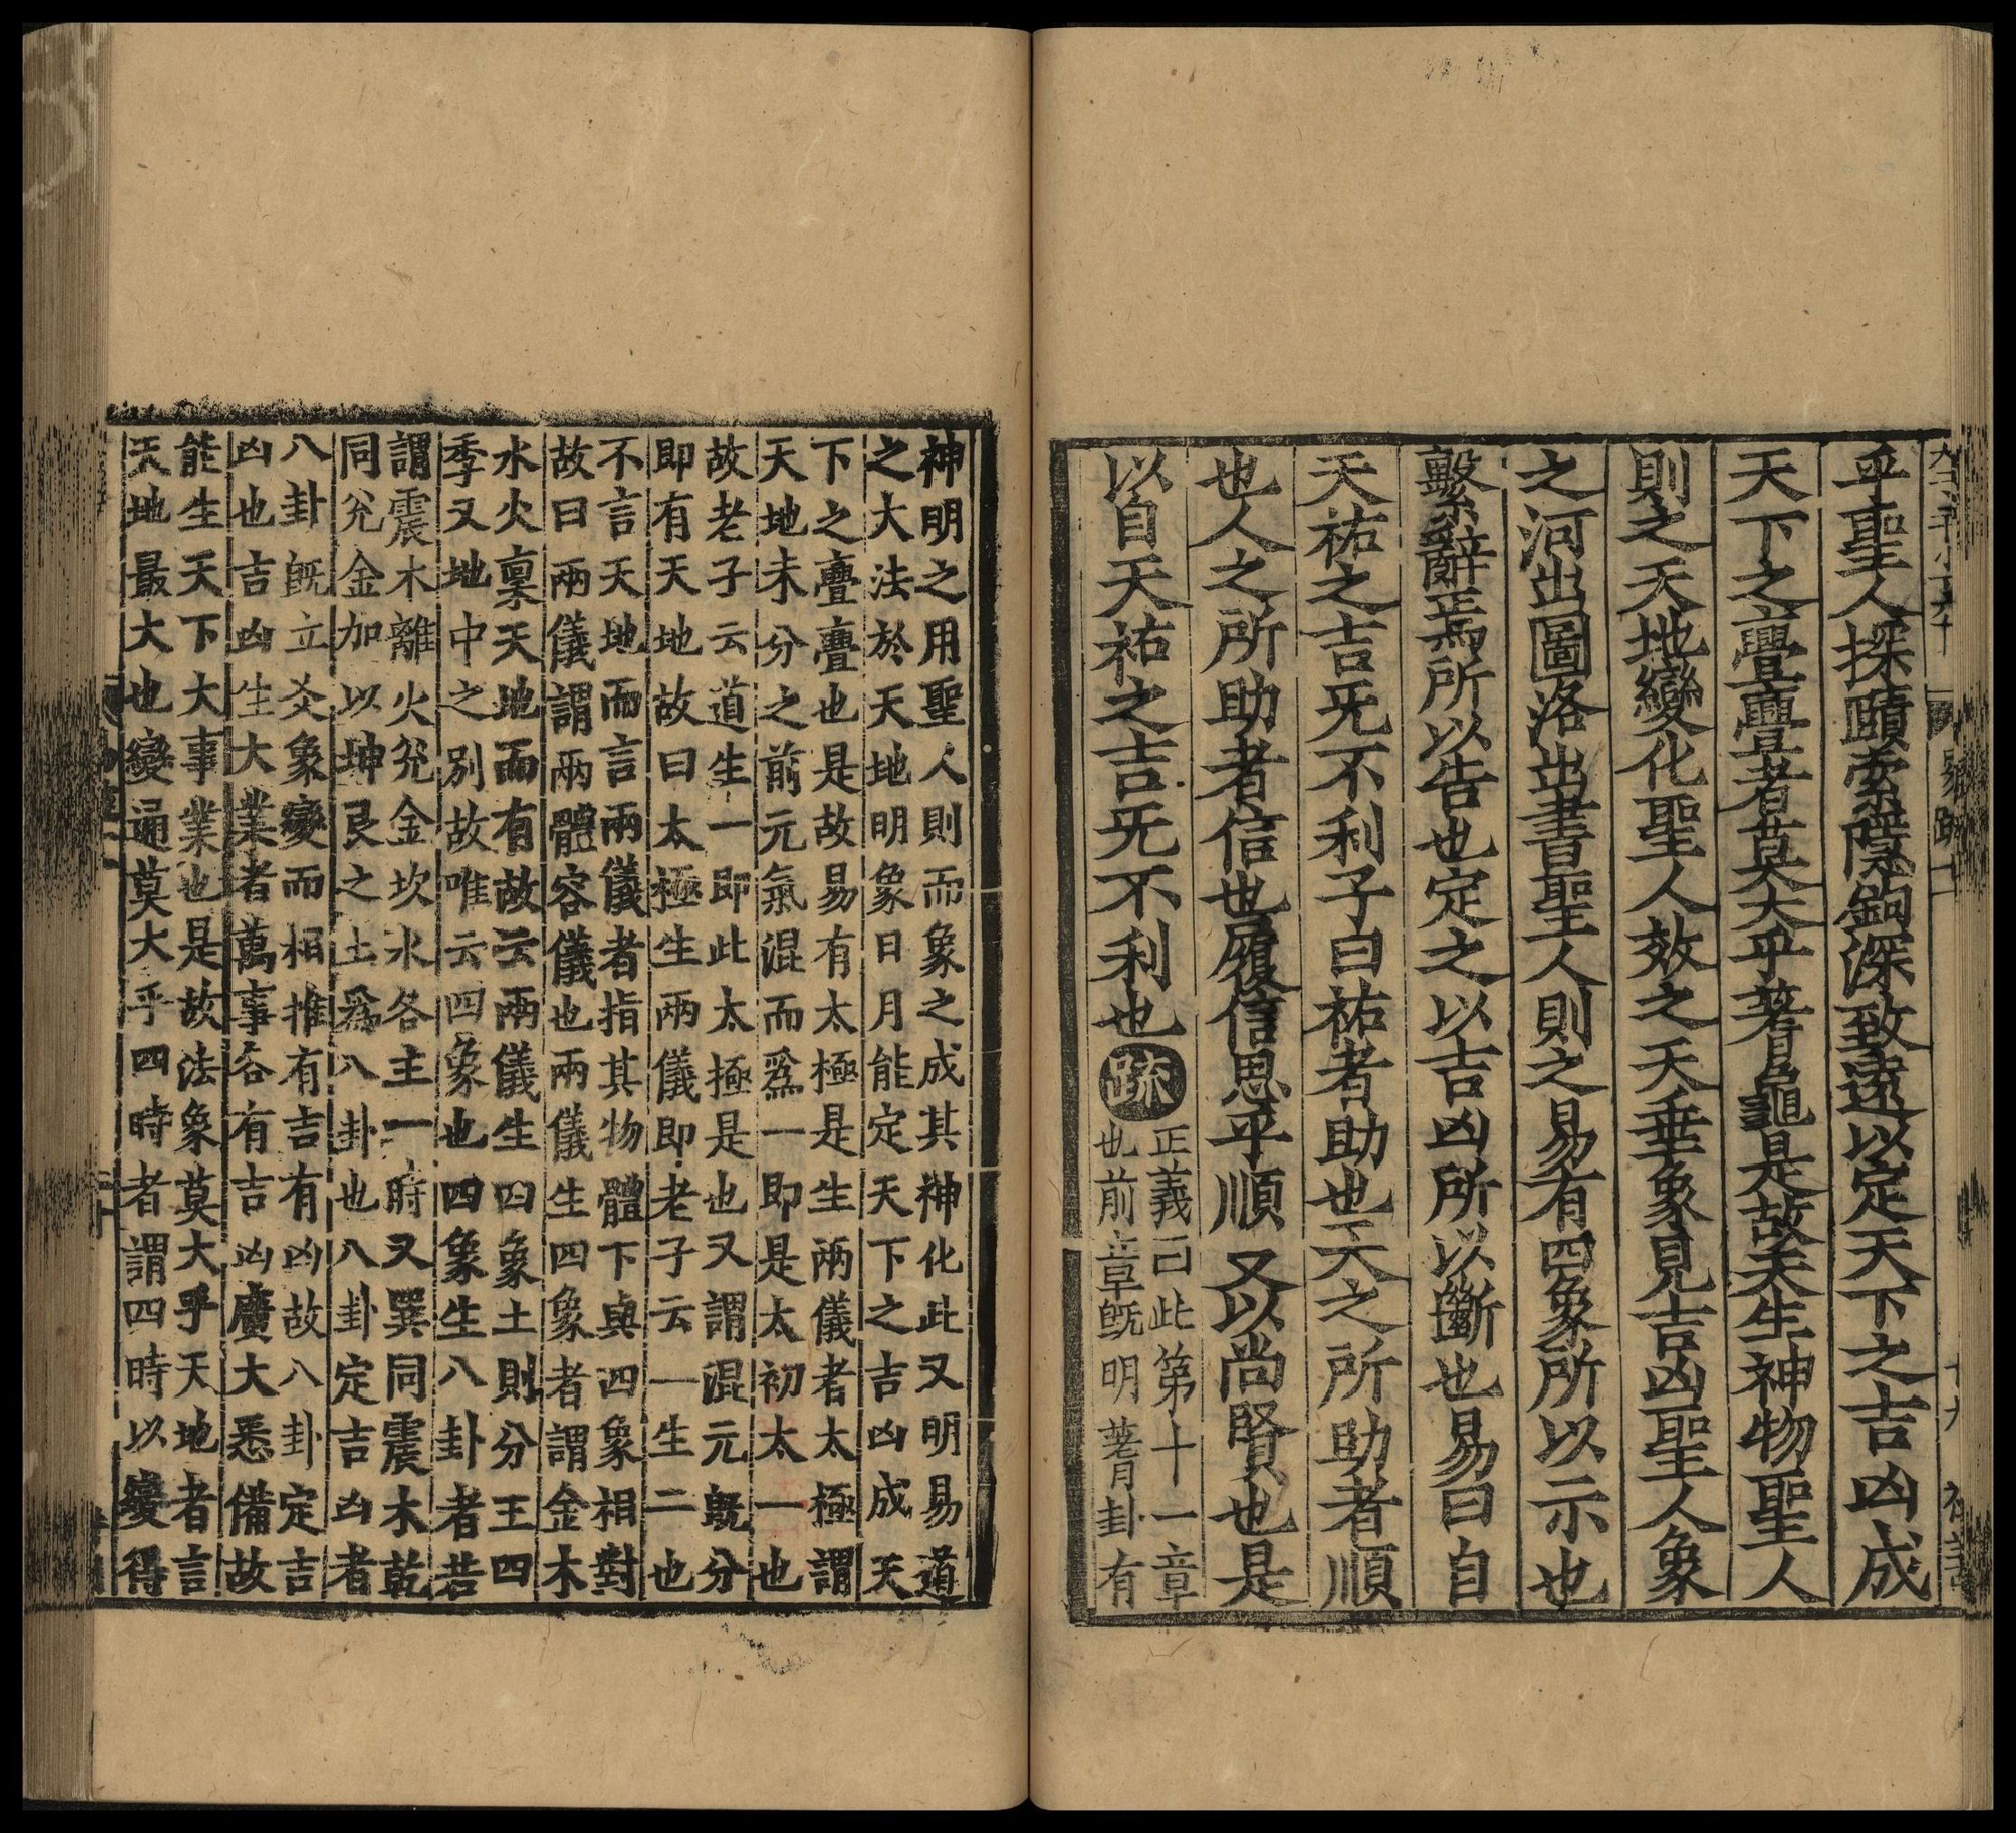 乎聖人探賾索隱鉤深致遠以定天下之吉凶成
天下之亹亹者莫大乎蓍龜是故天生神物聖人
則之天地變化聖人效之天垂象見吉凶聖人象
之河出圖洛出書聖人則之易有四象所以示也
繫辭焉所以告也定之以吉凶所以斷也易曰自
天祐之吉旡不利子曰祐者助也天之所助者順
也人之所助者信也履信思乎順又以尚賢也是
以自天祐之吉旡不利也疏
正義曰此第十一章
也前章旣明蓍卦有
神明之用聖人則而象之成其神化此又明易道
之大法於天地明象日月能定天下之吉凶成天
下之亹亹也是故易有太極是生兩儀者太極謂
天地未分之前元氣混而爲一即是太初太一也
故老子云道生一即此太極是也又謂混元旣分
即有天地故曰太極生兩儀即老子云一生二也
不言天地而言兩儀者指其物體下與四象相對
故曰兩儀謂兩體容儀也兩儀生四象者謂金木
水火稟天地而有故云兩儀生四象土則分王四
季又地中之別故唯云四象也四象生八卦者若
謂震木離火兊金坎水各主一時又巽同震木乾
同兊金加以坤艮之土爲八卦也八卦定吉凶者
八卦旣立爻象變而相推有吉有凶故八卦定吉
凶也吉凶生大業者萬事各有吉凶廣大悉備故
能生天下大事業也是故法象莫大乎天地者言
天地最大也變通莫大乎四時者謂四時以變得